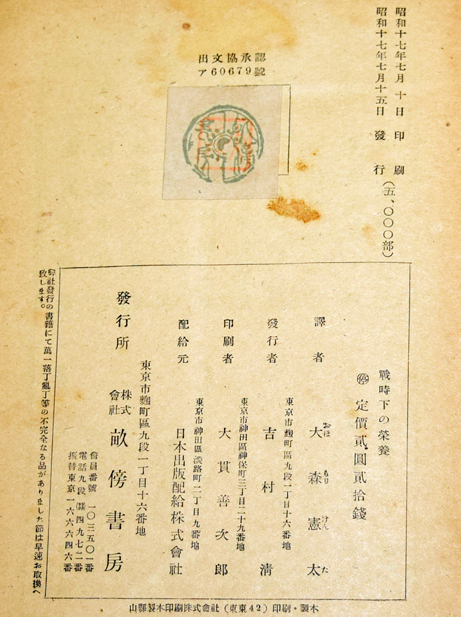 昭和十七年七月十日印刷
昭和十七年七月十五日發行(五、〇〇〇部)
出文協承認
ア60679號
戰時下の榮養
㊞定價貳圓貳拾錢
譯者 大森憲太
おほ もり けん た
東京市麴町區九段一丁目十六番地
發行者 吉村淸
東京市神田區神保町三丁目二十九番地
印刷者 大貫善次郎
東京市神田區淡路町二丁目九番地
配給元 日本出版配給株式會社
東京市麴町區九段一丁目十六番地
發行所 株式會社 畝傍書房
會員番號 一〇三五〇一番
電話九段(33)四九七二番
振替東京一六六六四六番
弊社發行の書籍にて萬一落丁亂丁等の不完全なる品がありました節は早速お取換へ
致します。
山縣製本印刷株式會社(東東42)印刷・製本